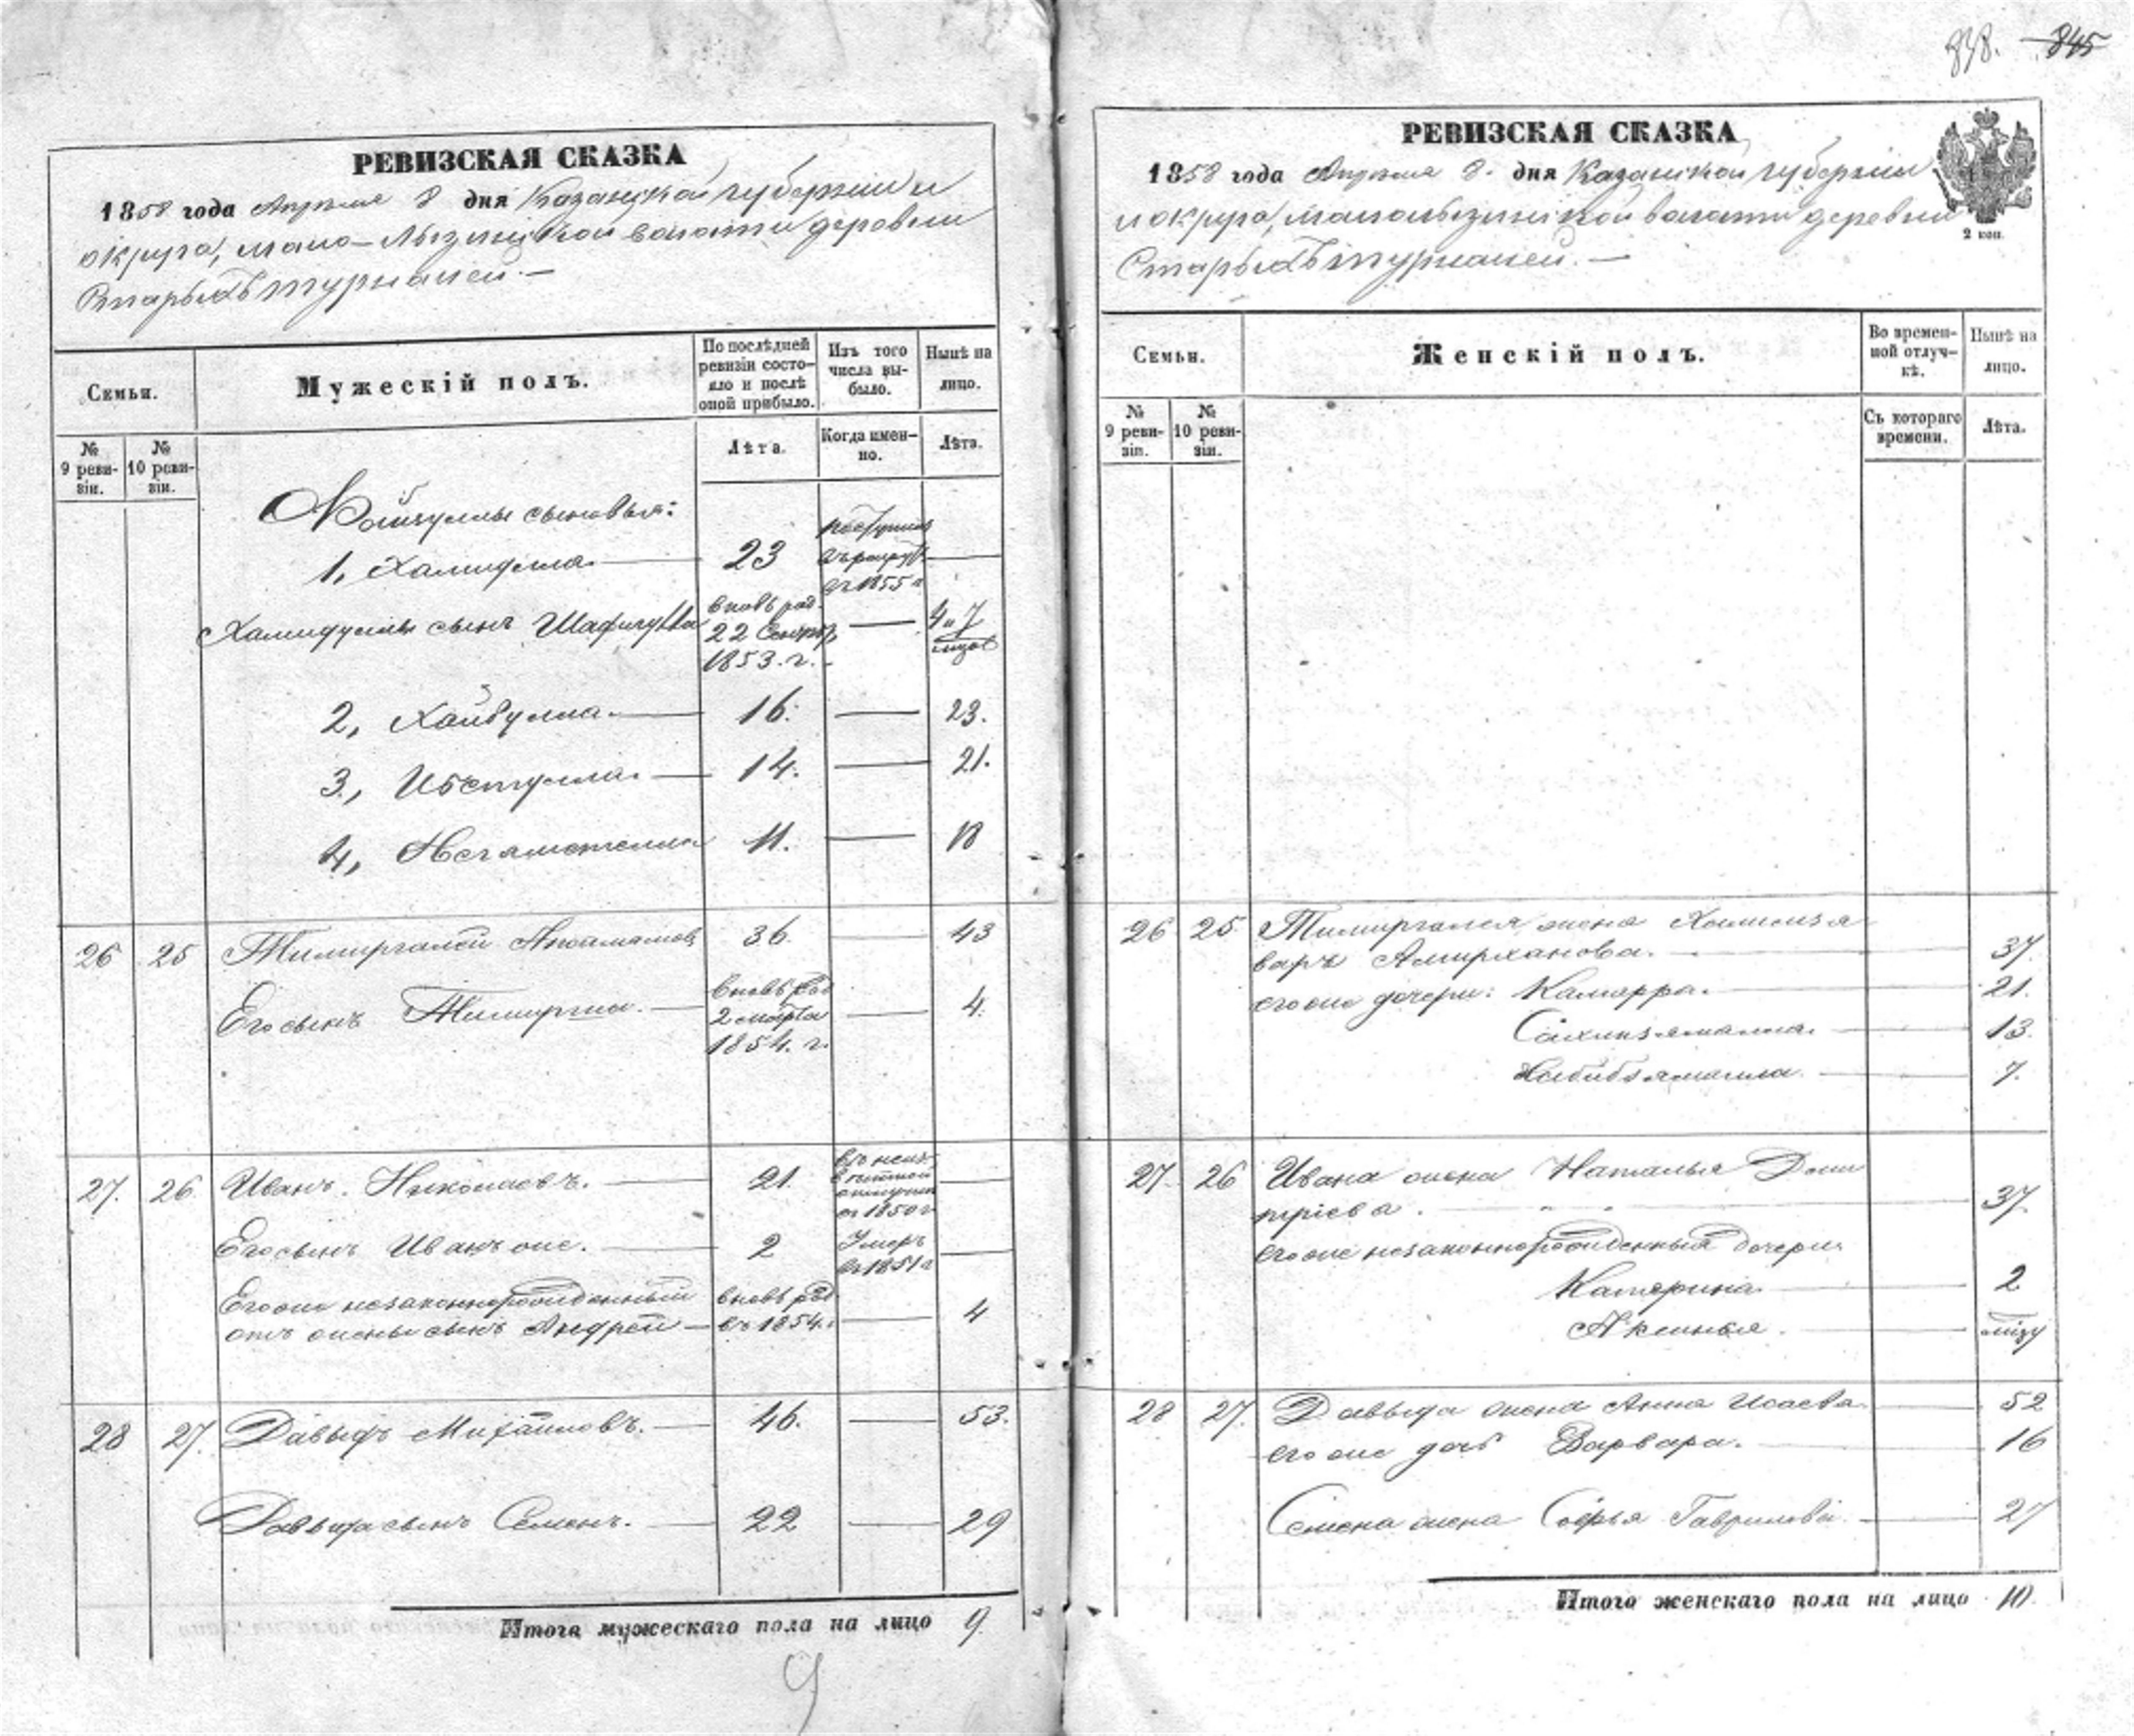 838. 845
РЕВИЗСКАЯ СКАЗКА
1858 года Апреля 8 дня Казанской губернии и
округа, мало-Лызинской волости деревни
Старыхъ турналей.—
Семьи.
Мужескій полъ.
По послѣдней ревизіи состояло и послѣ оной прибыло.
Изъ того числа выбыло.
Нынѣ на лицо.
№ 9 ревизіи.
№ 10 ревизіи.
Лѣта.
Когда именно.
Лѣта.
сыновья:
1, Халидулла 23 поступилъ въ рекруты въ 1855 г
Хамидуллы сынъ вновь род. 22 Сентяб. 1853. г. 4 и 7 мѣсяцов
2, Хайбулла. 16. 23.
3, 14. 21.
4, 11. 18
26 25 Тимиргалей 36. 43
Его сынъ вновь род 2 марта 1854. г. 4.
27. 26 Иванъ Николаевъ. 21. въ неизвѣстной отлучкѣ съ 1850 г
Его сынъ Иванъ же. 2 Умеръ въ 1851 г
Его же незаконнорожденный вновь род
отъ жены сынъ Андрей въ 1854. 4
28 27. Давыдъ Михайловъ. 46. 53.
Давыда сынъ Семенъ. 22 29
Итого мужескаго пола на лицо 9.
9
РЕВИЗСКАЯ СКАЗКА
1858 года Апреля 8. дня Казанской губернии
и округа, малолызинской волости деревни
Старыхъ турналей.—
2 коп.
Семьи.
Женскій полъ.
Во временной отлучкѣ.
Нынѣ на лицо.
№ 9 ревизіи.
№ 10 ревизіи.
Съ котораго времени.
Лѣта.
26 25 Тимиргалея жена
Амирханова. 37.
его же дочери: Камарра. 21.
13.
Хабибзямалла. 7.
27. 26 Ивана жена Наталья Дми
трiева. 37.
его же незаконнорожденныя дочери
Катерина 2
Аксинья.
28 27. Давыда жена Анна Исаева 52
его же дочь Варвара. 16
Семена жена Софья Гаврилова 27
Итого женскаго пола на лицо 10.